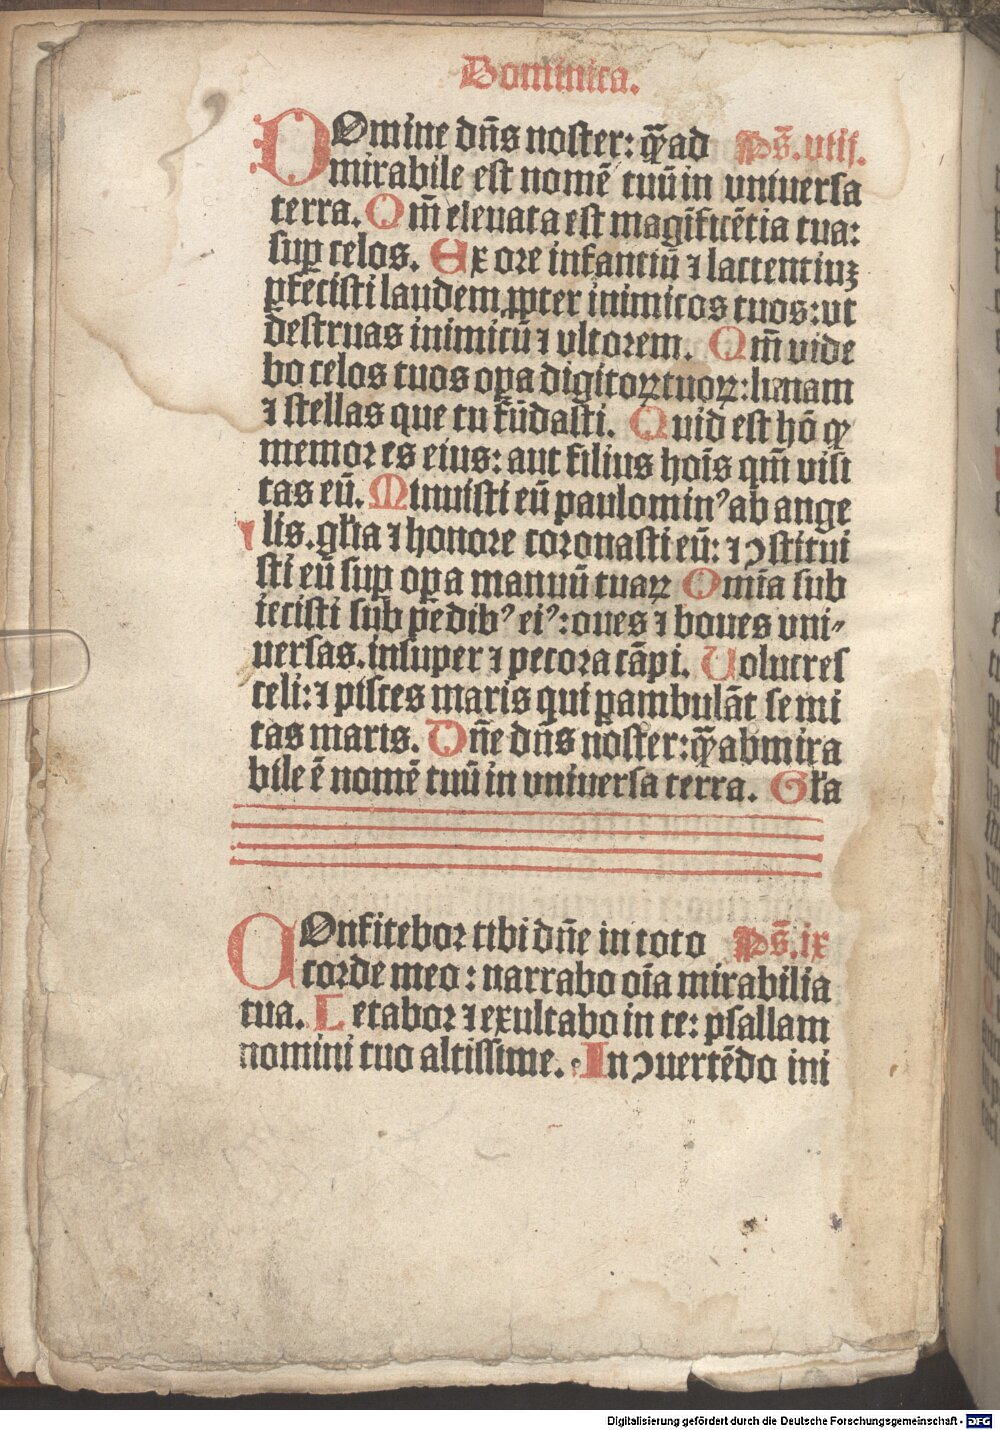 Dominica.
DOmine dn̄s noster: q̄ȝ ad Ps̄.viij.
mirabile est nomē tuū in vniuersa
terra. Qm̄ eleuata est magīficētia tua:
suꝑ celos. Ex ore infantiū ⁊ lactentiuȝ
ꝑfecisti laudem ꝓpter inimicos tuos: vt
destruas inimicū ⁊ vltorem. Qm̄ vide
bo celos tuos oꝑa digitoꝝ tuoꝝ: lunam
⁊ stellas que tu fūdasti. Quid est hō ꝙ
memor es eius: aut filius hoīs qm̄ visi
tas eū. Minuisti eū paulomin⁹ ab ange
lis. gl̄ia ⁊ honore coronasti eū: ⁊ ꝯstitui
sti eū suꝑ oꝑa manuū tuaꝝ Omīa sub
iecisti sub pedib⁹ ei⁹: oues ⁊ boues vni-
uersas. insuper ⁊ pecora cāpi. Uolucres
celi: ⁊ pisces maris qui ꝑambulāt semi
tas maris. Dn̄e dn̄s noster: q̄ȝ admira
bile ē nomē tuū in vniuersa terra. Gl̄a
COnfitebor tibi dn̄e in toto Ps̄.ix
corde meo: narrabo oīa mirabilia
tua. Letabor ⁊ exultabo in te: psallam
nomini tuo altissime. In ꝯuertēdo ini
Digitalisierung gefördert durch die Deutsche Forschungsgemeinschaft - DFG